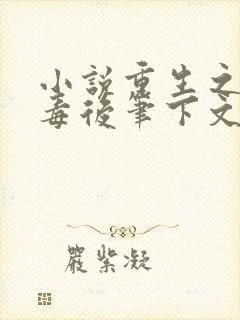 小说重生之
毒後筆下文
嚴紫凝